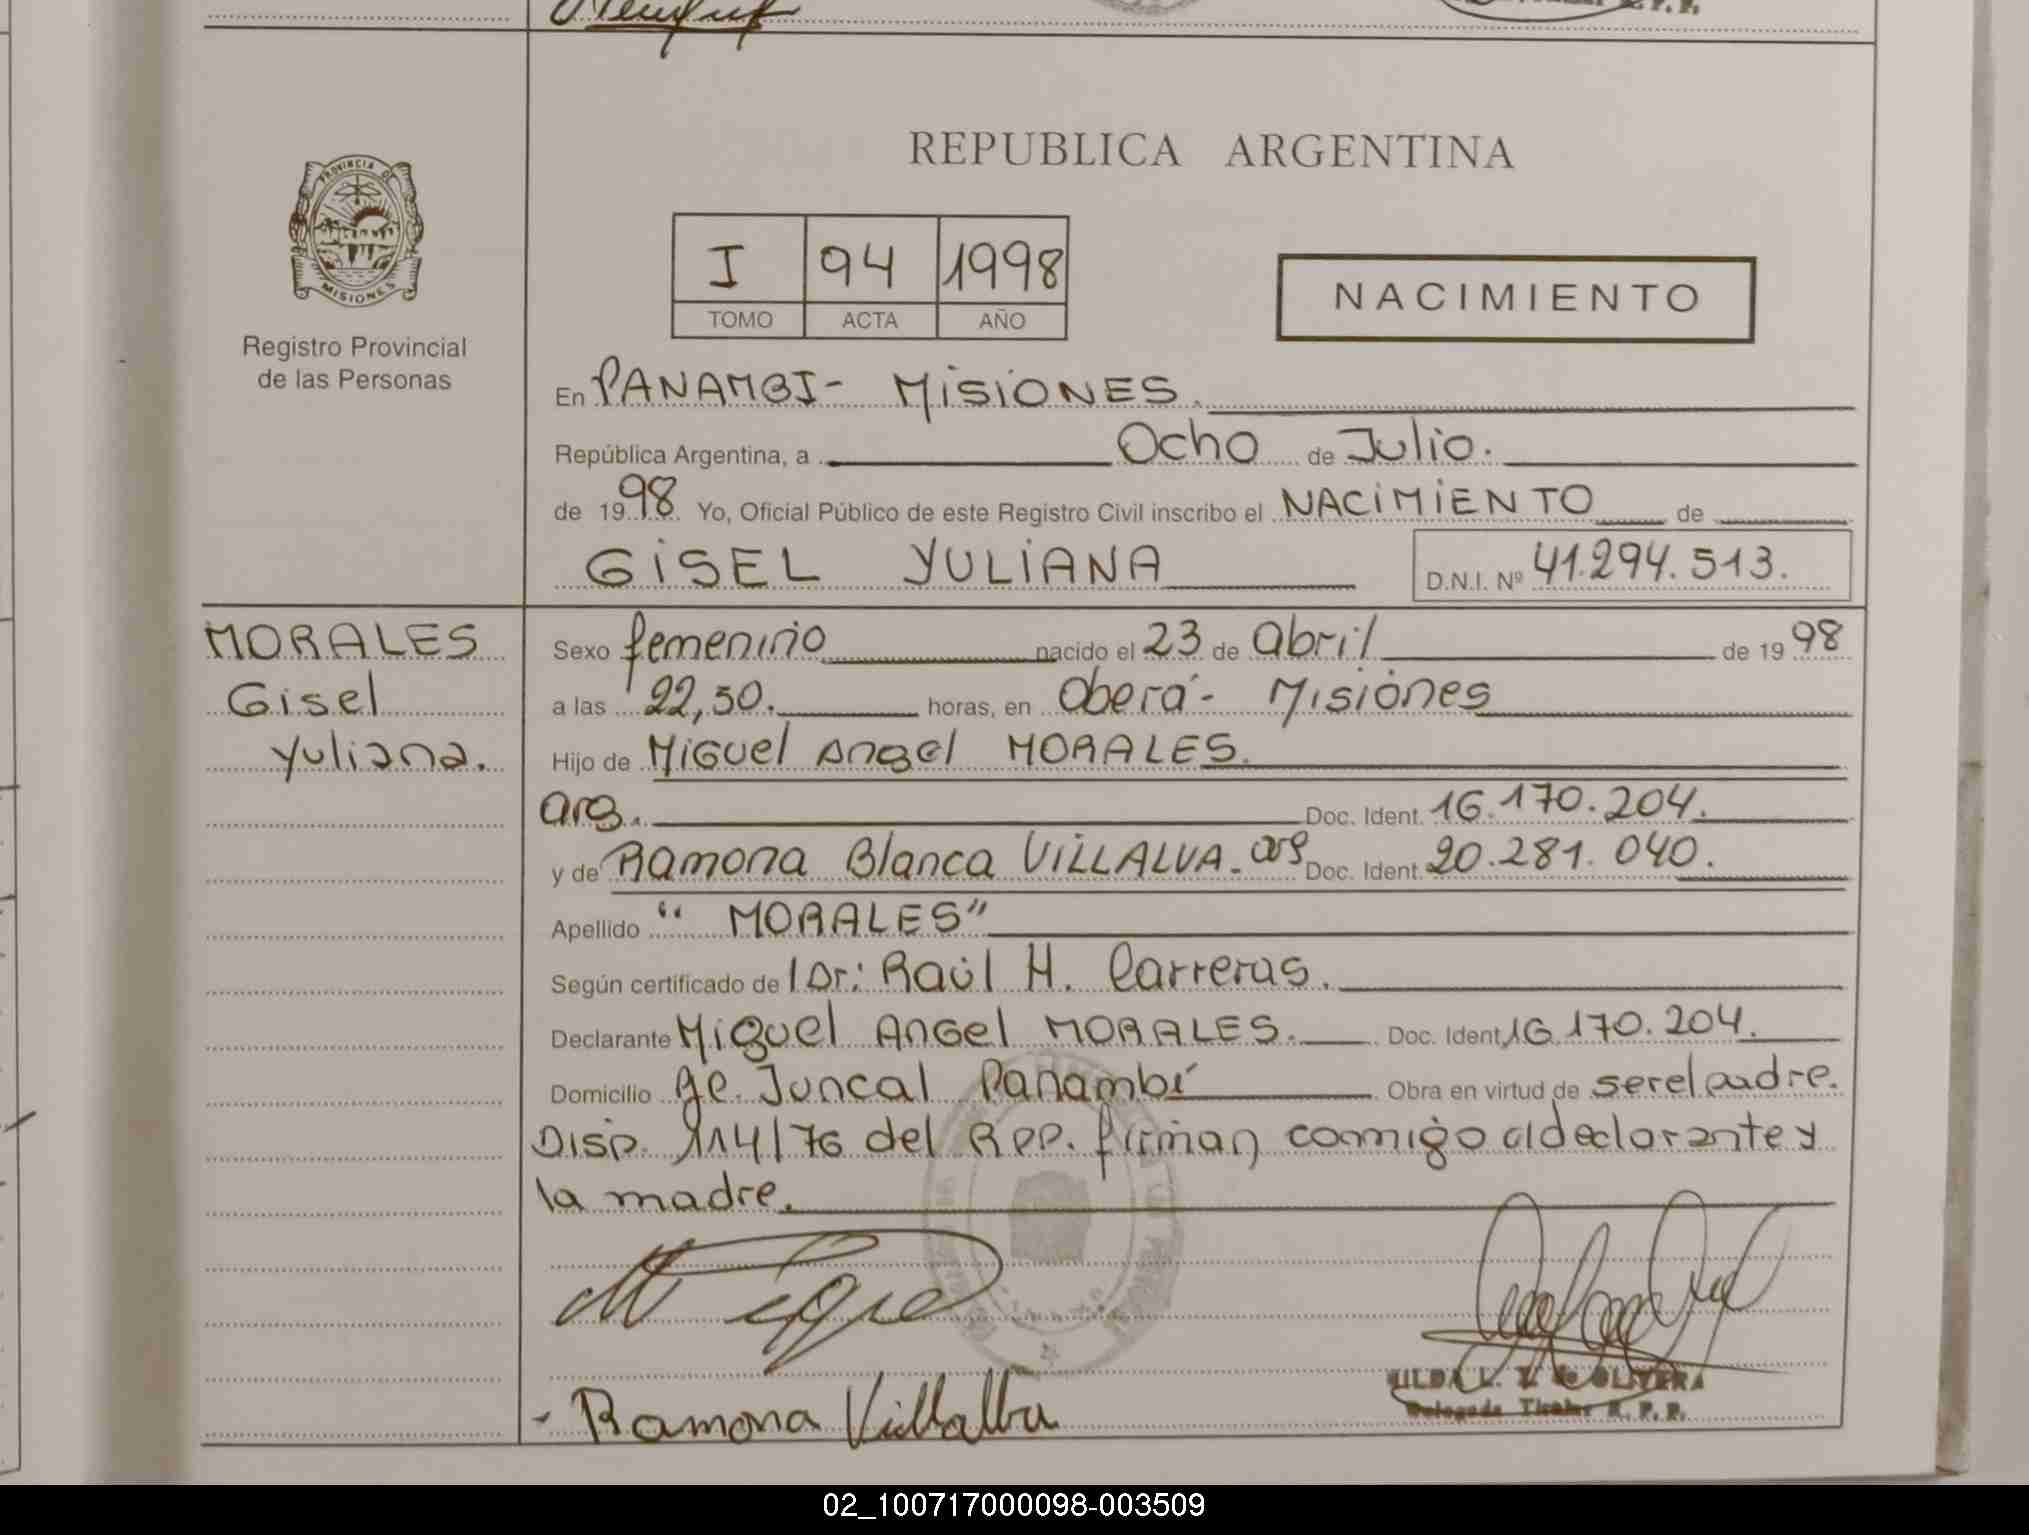 REPUBLICA ARGENTINA
PROVINCIA DE
MISIONES
Registro Provincial
de las Personas
I 94 1998
TOMO ACTA AÑO
NACIMIENTO
En PANAMBI- MISIONES.
República Argentina, a Ocho de Julio.
de 1998 Yo, Oficial Público de este Registro Civil inscribo el NACIMIENTO de
GISEL YULIANA D.N.I. Nº 41.294.513.
MORALES
Gisel
Yuliana.
Sexo femenino nacido el 23 de abril de 1998
a las 22,30. horas, en Oberá- Misiones
Hijo de Miguel Angel MORALES.
arg. Doc. Ident. 16.170.204.
y de Ramona Blanca VILLALVA. arg Doc. Ident. 20.281.040.
Apellido "MORALES"
Según certificado de l Dr: Raúl H. Carreras.
Declarante Miguel Angel MORALES. Doc. Ident. 16.170.204.
Domicilio Ae. Juncal Panambí Obra en virtud de ser el padre.
Disp. 114/76 del RPP. firman conmigo el declarante y
la madre.
Ramona Villalba
HILDA L. OLIVERA
Delegada Titular R. P. P.
02_100717000098-003509